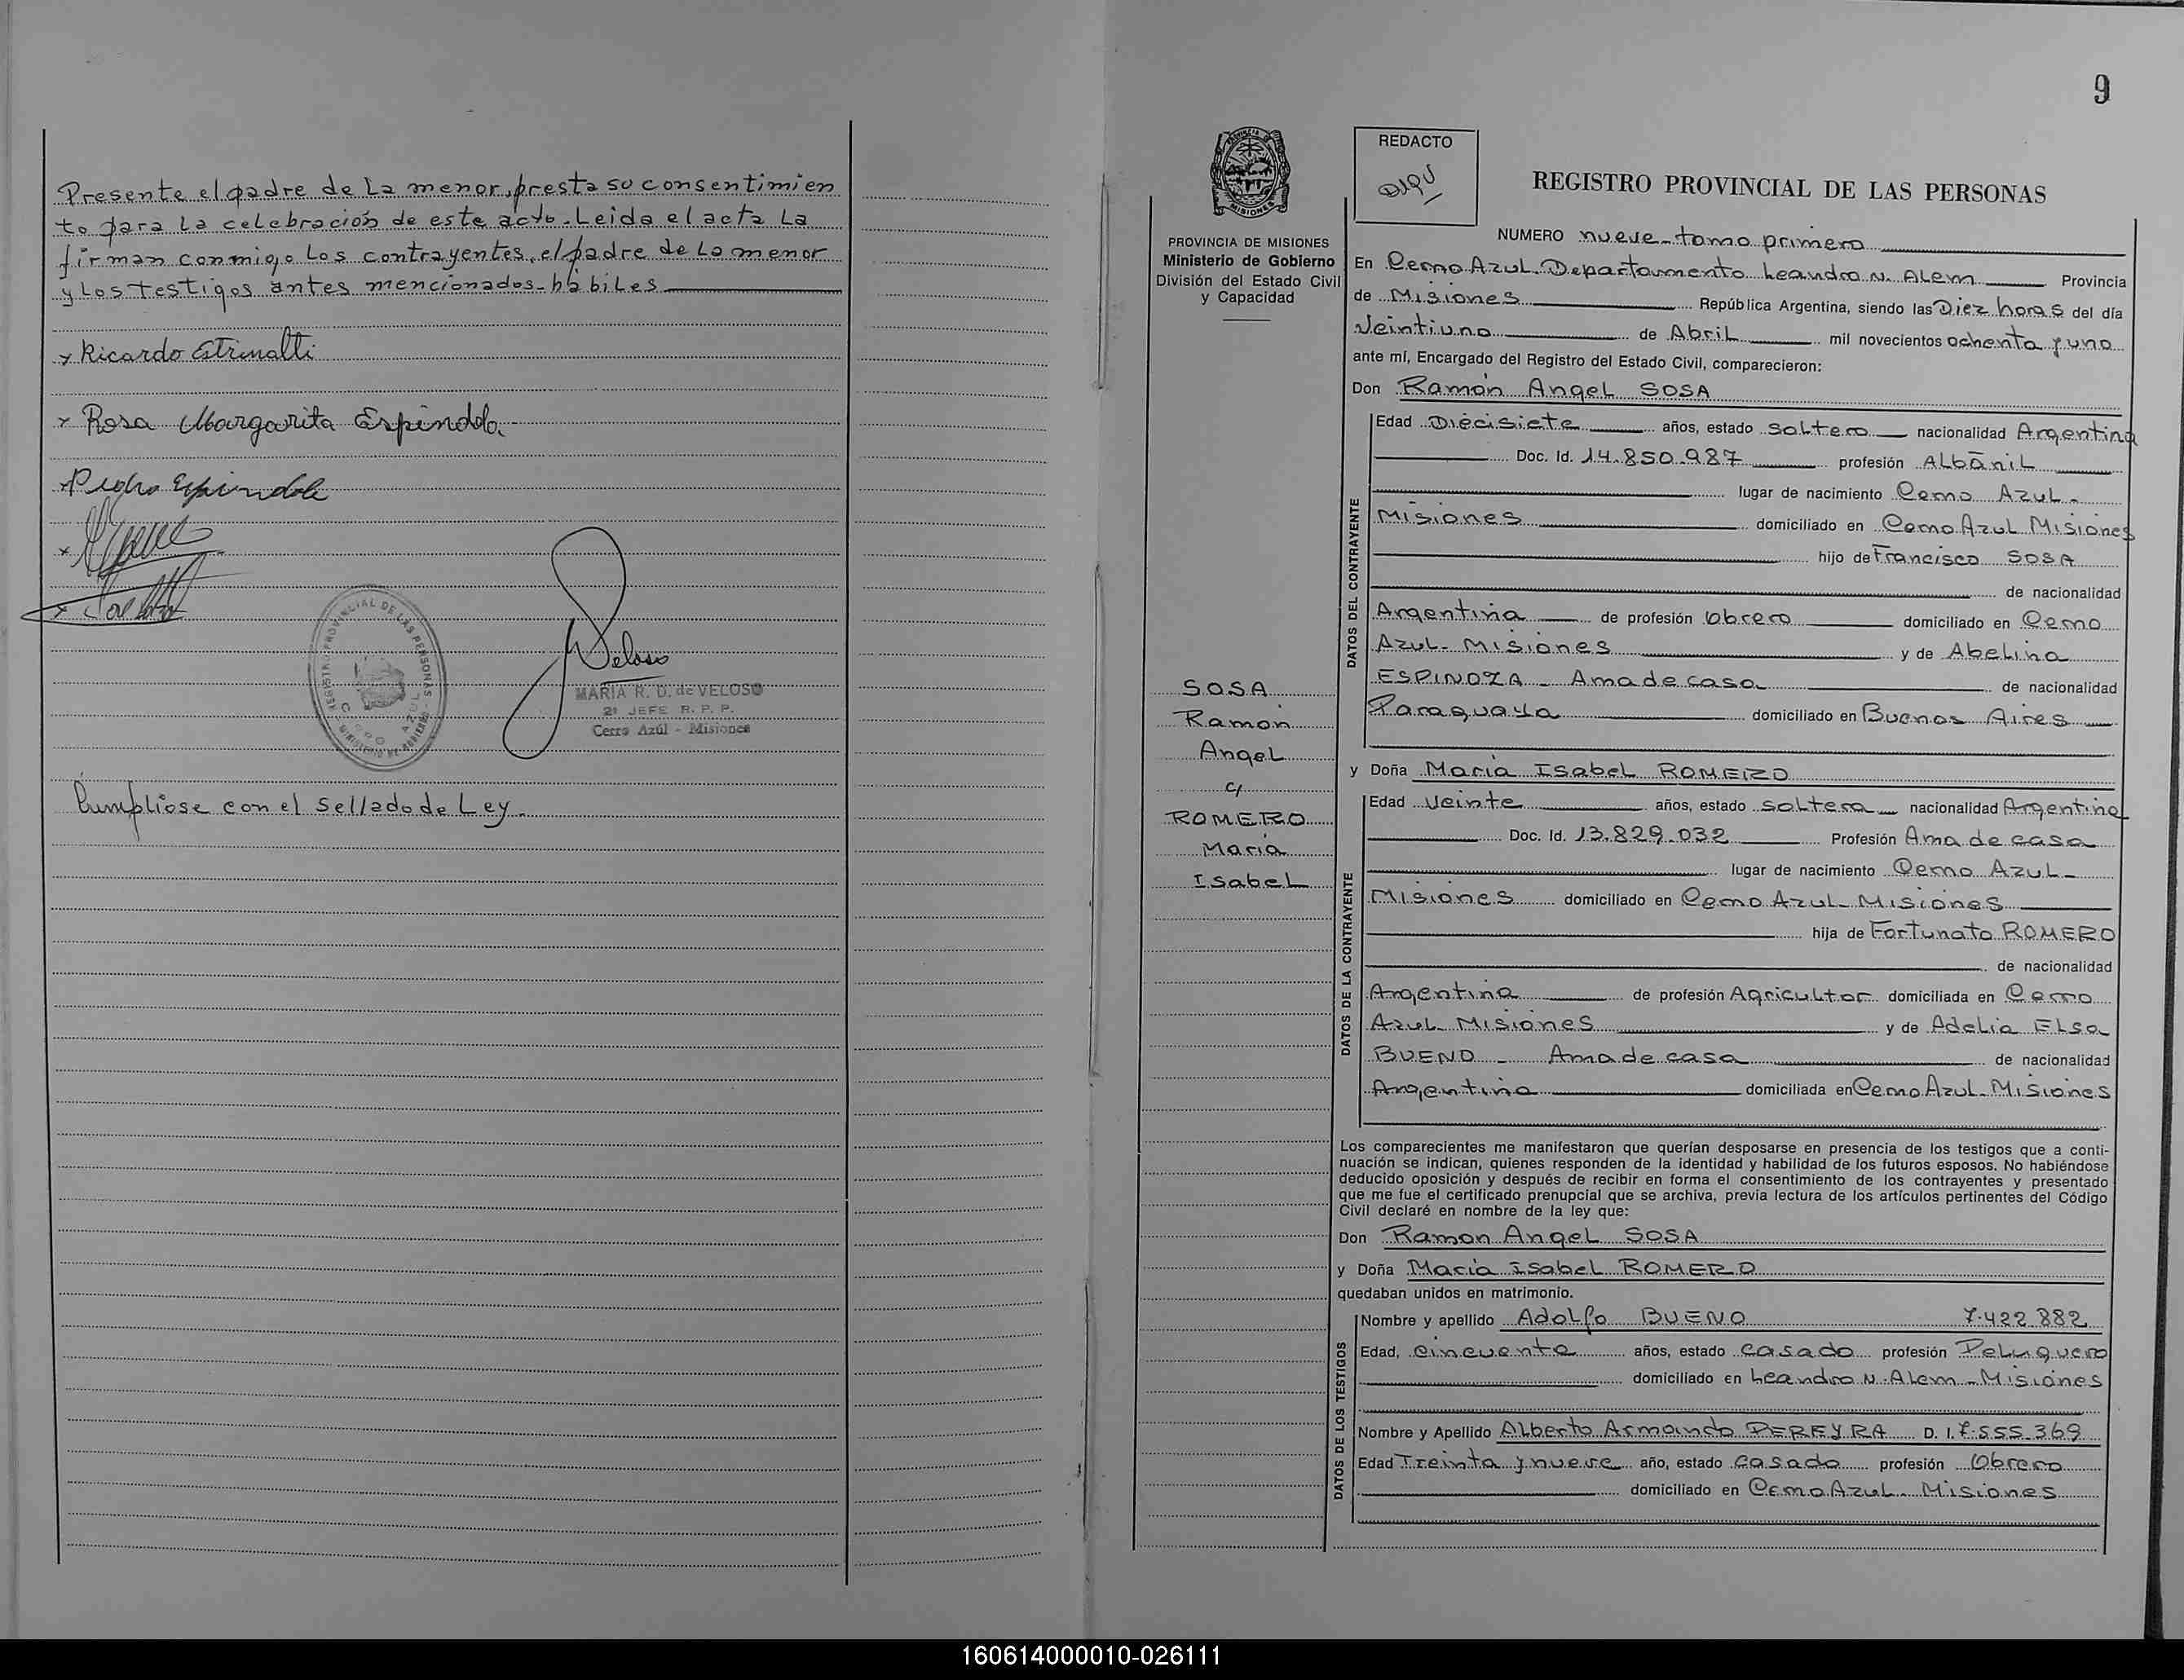 Presente el padre de la menor, presta su consentimien
to para la celebración de este acto. Leida el acta la
firman conmigo los contrayentes, el padre de la menor
y los testigos antes mencionados-hábiles
x Ricardo
x Rosa Margarita Espindola
x Pedro Espindola
x
x
REGISTRO PROVINCIAL DE LAS PERSONAS
CERRO AZUL
Veloso
MARIA R. D. de VELOSO
2º JEFE R. P. P.
Cerro Azúl - Misiones
Cumpliose con el sellado de Ley.
9
PROVINCIA DE MISIONES
Ministerio de Gobierno
División del Estado Civil
y Capacidad
SOSA
Ramón
Angel
c/
ROMERO
María
Isabel
REDACTO
REGISTRO PROVINCIAL DE LAS PERSONAS
NUMERO nueve-tomo primero
En Cerro Azul. Departamento Leandro N. Alem Provincia
de Misiones República Argentina, siendo las Diez horas del día
Veintiuno de Abril mil novecientos ochenta y uno
ante mí, Encargado del Registro del Estado Civil, comparecieron:
Don Ramón Angel SOSA
DATOS DEL CONTRAYENTE
Edad Diecisiete años, estado soltero nacionalidad Argentina
Doc. Id. 14.850.987 profesión Albañil
lugar de nacimiento Cerro Azul-
Misiones domiciliado en Cerro Azul Misiones
hijo de Francisco SOSA
de nacionalidad
Argentina de profesión Obrero domiciliado en Cerro
Azul- Misiones y de Abelina
ESPINOZA - Ama de casa de nacionalidad
Paraguaya domiciliado en Buenos Aires
y Doña María Isabel ROMERO
DATOS DE LA CONTRAYENTE
Edad Veinte años, estado soltera nacionalidad Argentina
Doc. Id. 13.829.032 Profesión Ama de casa
lugar de nacimiento Cerro Azul-
Misiones domiciliado en Cerro Azul- Misiones
hija de Fortunato ROMERO
de nacionalidad
Argentina de profesión Agricultor domiciliada en Cerro
Azul- Misiones y de Adelia Elsa
BUENO - Ama de casa de nacionalidad
Argentina domiciliada en Cerro Azul- Misiones
Los comparecientes me manifestaron que querían desposarse en presencia de los testigos que a conti-
nuación se indican, quienes responden de la identidad y habilidad de los futuros esposos. No habiéndose
deducido oposición y después de recibir en forma el consentimiento de los contrayentes y presentado
que me fue el certificado prenupcial que se archiva, previa lectura de los artículos pertinentes del Código
Civil declaré en nombre de la ley que:
Don Ramon Angel SOSA
y Doña María Isabel ROMERO
quedaban unidos en matrimonio.
DATOS DE LOS TESTIGOS
Nombre y apellido Adolfo BUENO 7.422.882
Edad, cincuenta años, estado casado profesión Peluquero
domiciliado en Leandro N. Alem - Misiones
Nombre y Apellido Alberto Armando PEREYRA D. I. 7.555.369
Edad Treinta y nueve año, estado casado profesión Obrero
domiciliado en Cerro Azul- Misiones
160614000010-026111